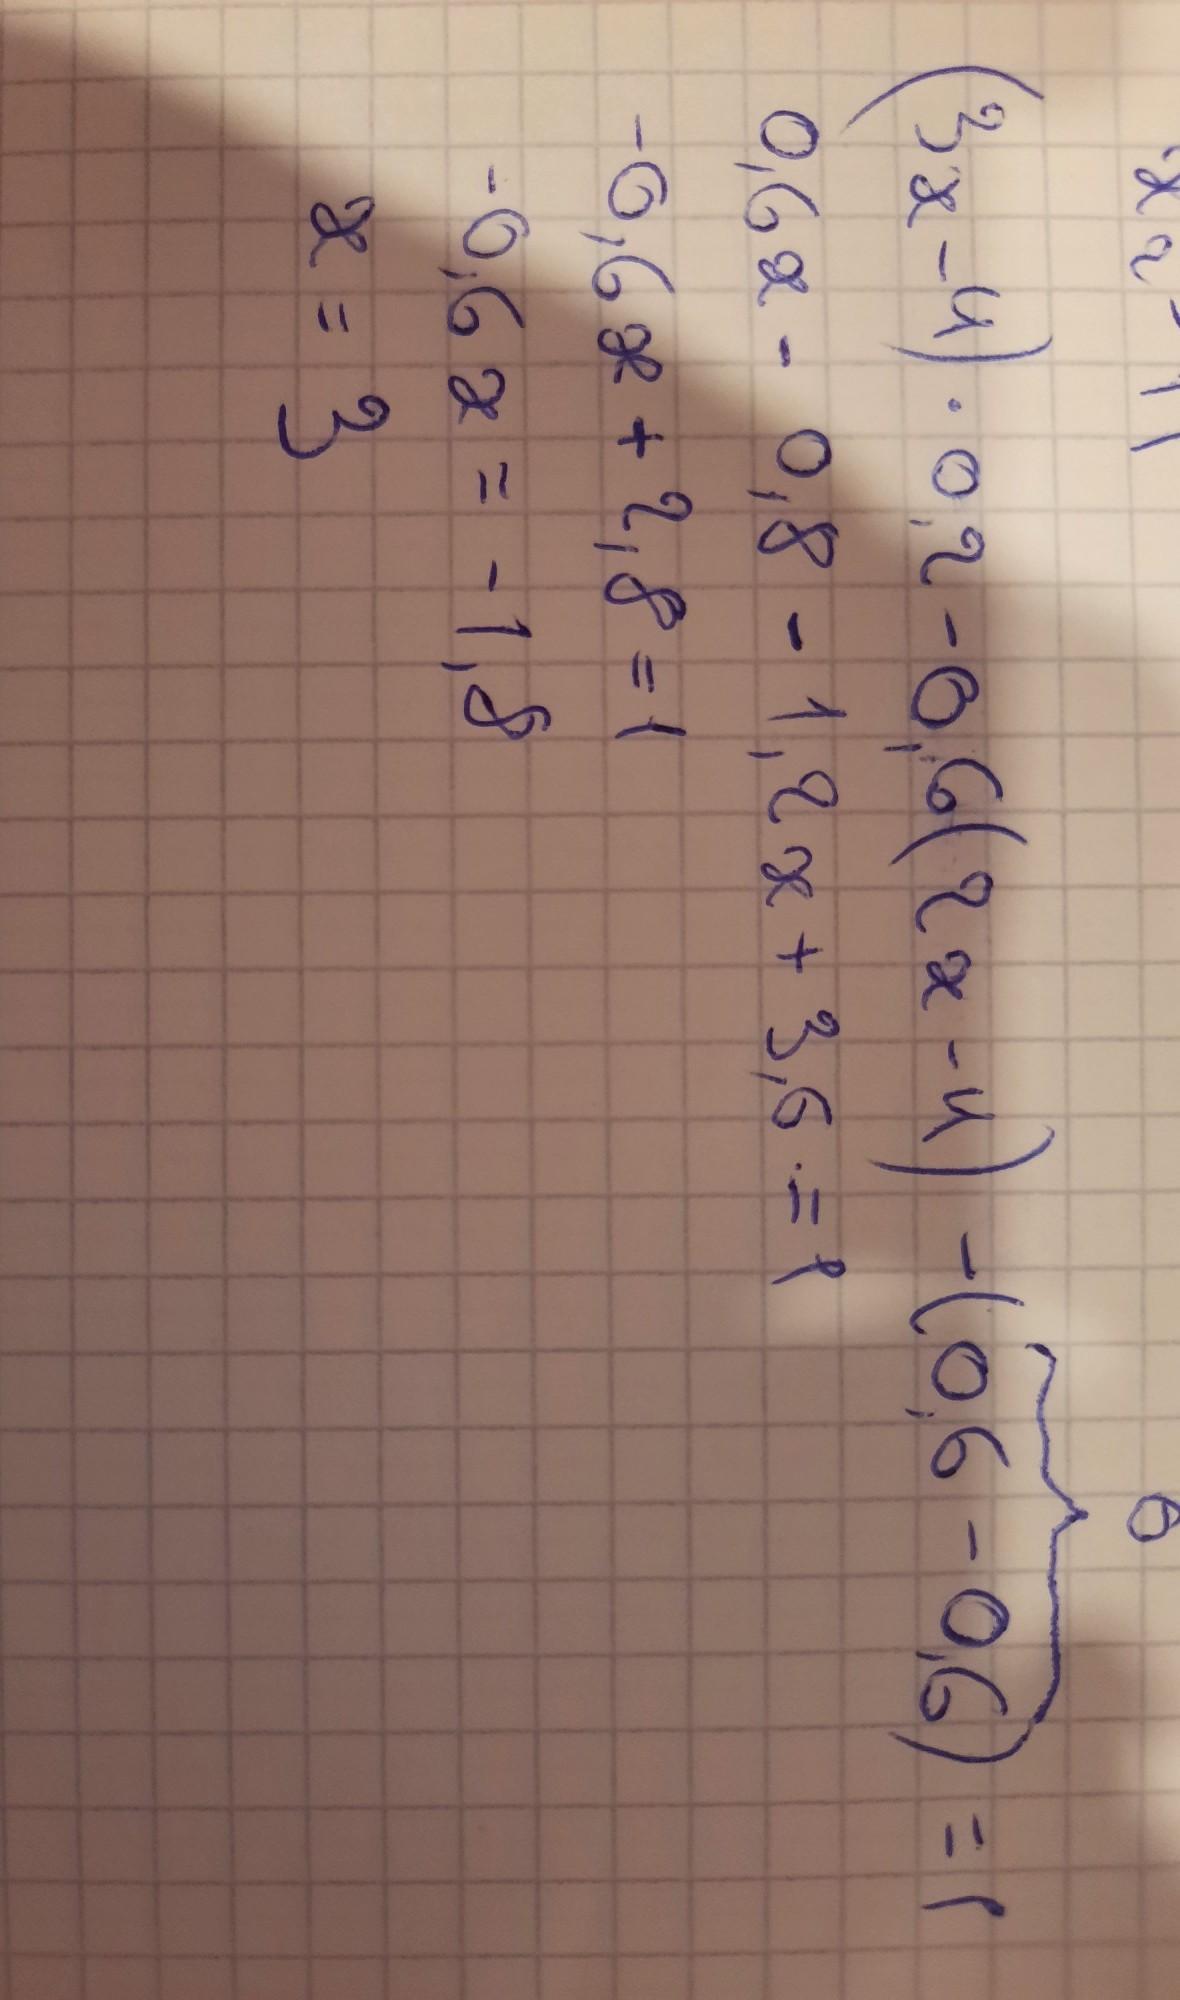 (3x-4)·0,2-0,6(2x-4)-(0,6-0,6)=1
0,6x-0,8-1,2x+3,6=1
-0,6x+2,8=1
-0,6x=-1,8
x=3